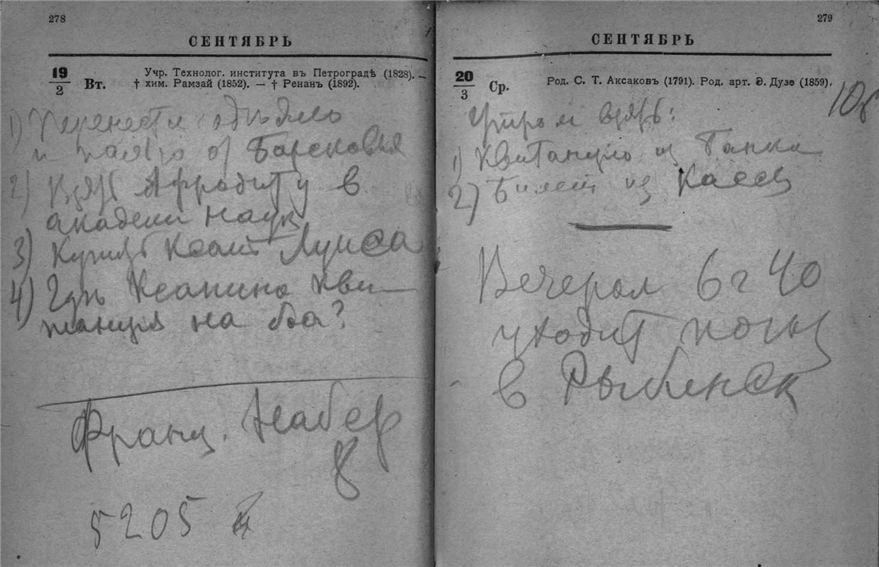 278
СЕНТЯБРЬ
19
2
Вт.
Учр. Технолог. института въ Петроградѣ (1828). —
† хим. Рамзай (1852). — † Ренанъ (1892).
1) Перенести одѣяло
и пальто от
2) Взять Афродиту в
академии наук
3) Купить Луиса
4) Гдѣ Ксанина кви—
танция на боа?
Франц. Набер
8
5205
279
СЕНТЯБРЬ
20
3
Ср.
Род. С. Т. Аксаковъ (1791). Род. арт. Э. Дузе (1859).
Утром взять:
1) Квитанцию из банка
2) Билет из Кассы
Вечером 6 г 40
уходит поезд
в Рыбинск